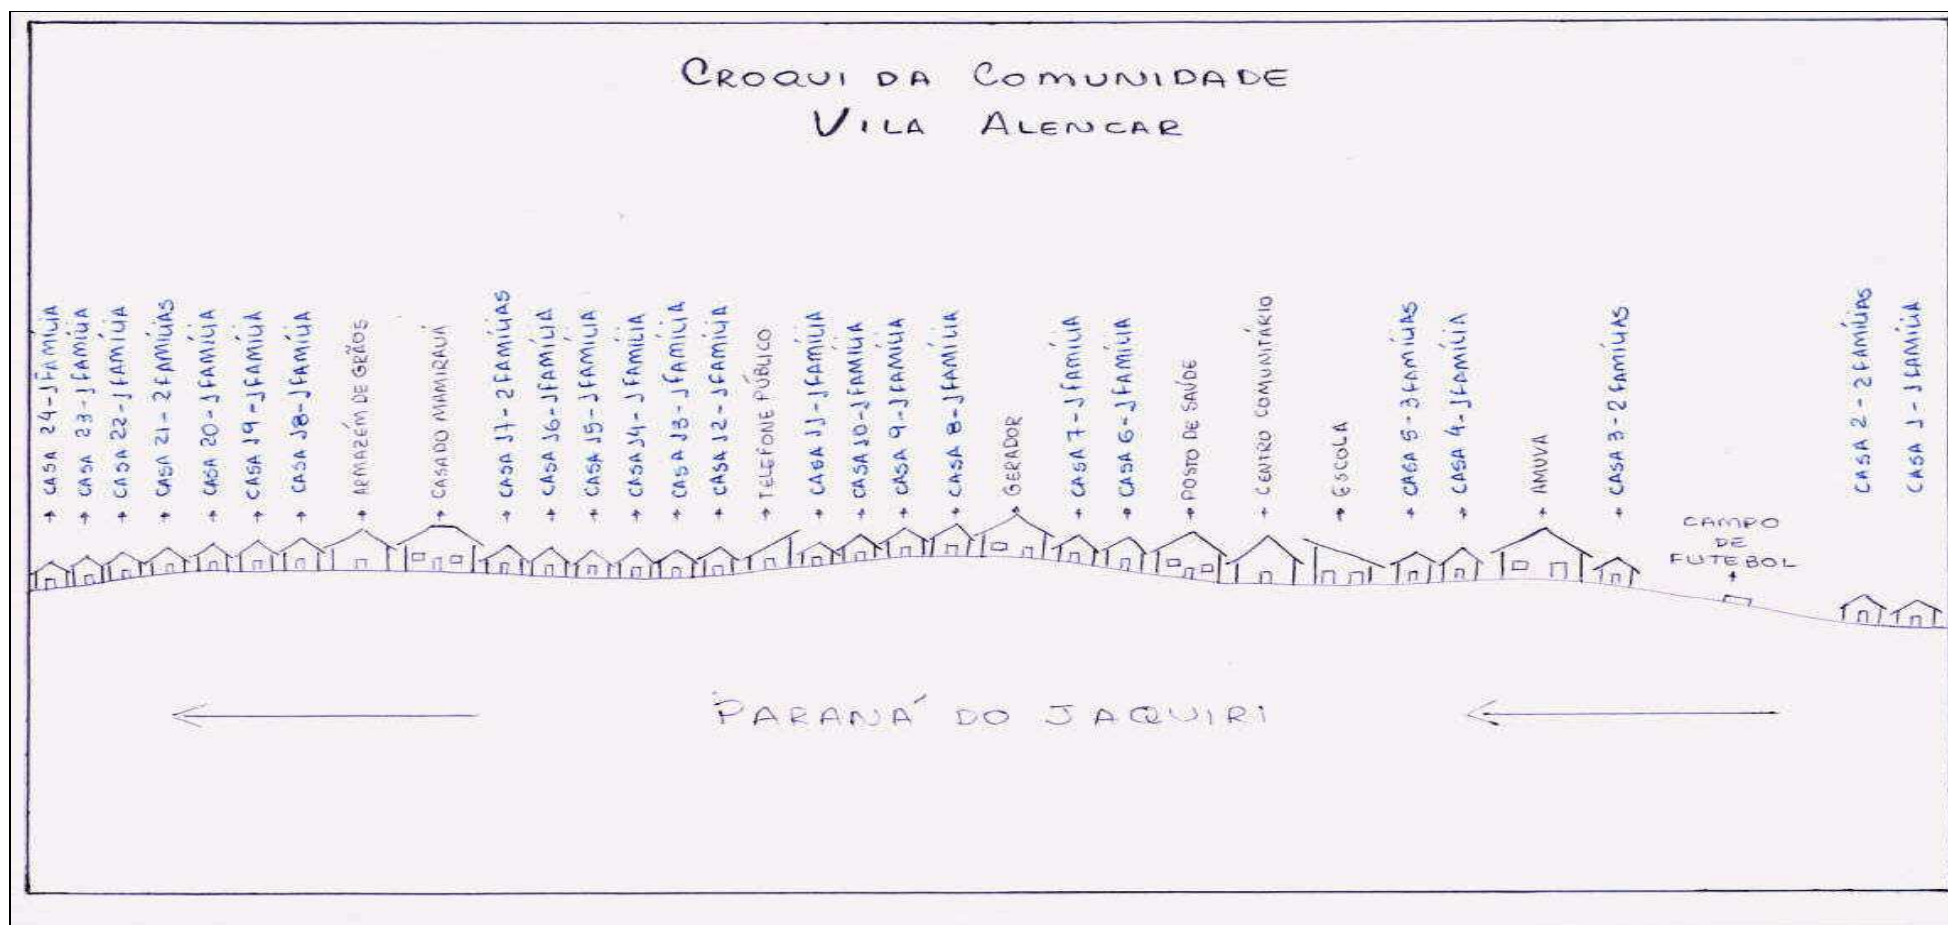 CROQUI DA COMUNIDADE
VILA ALENCAR
CASA 24 - 1 FAMÍLIA
CASA 23 - 1 FAMÍLIA
CASA 22 - 1 FAMÍLIA
CASA 21 - 2 FAMÍLIAS
CASA 20 - 1 FAMÍLIA
CASA 19 - 1 FAMÍLIA
CASA 18 - 1 FAMÍLIA
ARMAZÉM DE GRÃOS
CASA DO MAMIRAUÁ
CASA 17 - 2 FAMÍLIAS
CASA 16 - 1 FAMÍLIA
CASA 15 - 1 FAMÍLIA
CASA 14 - 1 FAMÍLIA
CASA 13 - 1 FAMÍLIA
CASA 12 - 1 FAMÍLIA
TELEFONE PÚBLICO
CASA 11 - 1 FAMÍLIA
CASA 10 - 1 FAMÍLIA
CASA 9 - 1 FAMÍLIA
CASA 8 - 1 FAMÍLIA
GERADOR
CASA 7 - 1 FAMÍLIA
CASA 6 - 1 FAMÍLIA
POSTO DE SAÚDE
CENTRO COMUNITÁRIO
ESCOLA
CASA 5 - 3 FAMÍLIAS
CASA 4 - 1 FAMÍLIA
AMUVA
CASA 3 - 2 FAMÍLIAS
CAMPO
DE
FUTEBOL
CASA 2 - 2 FAMÍLIAS
CASA 1 - 1 FAMÍLIA
PARANÁ DO JAQUIRI